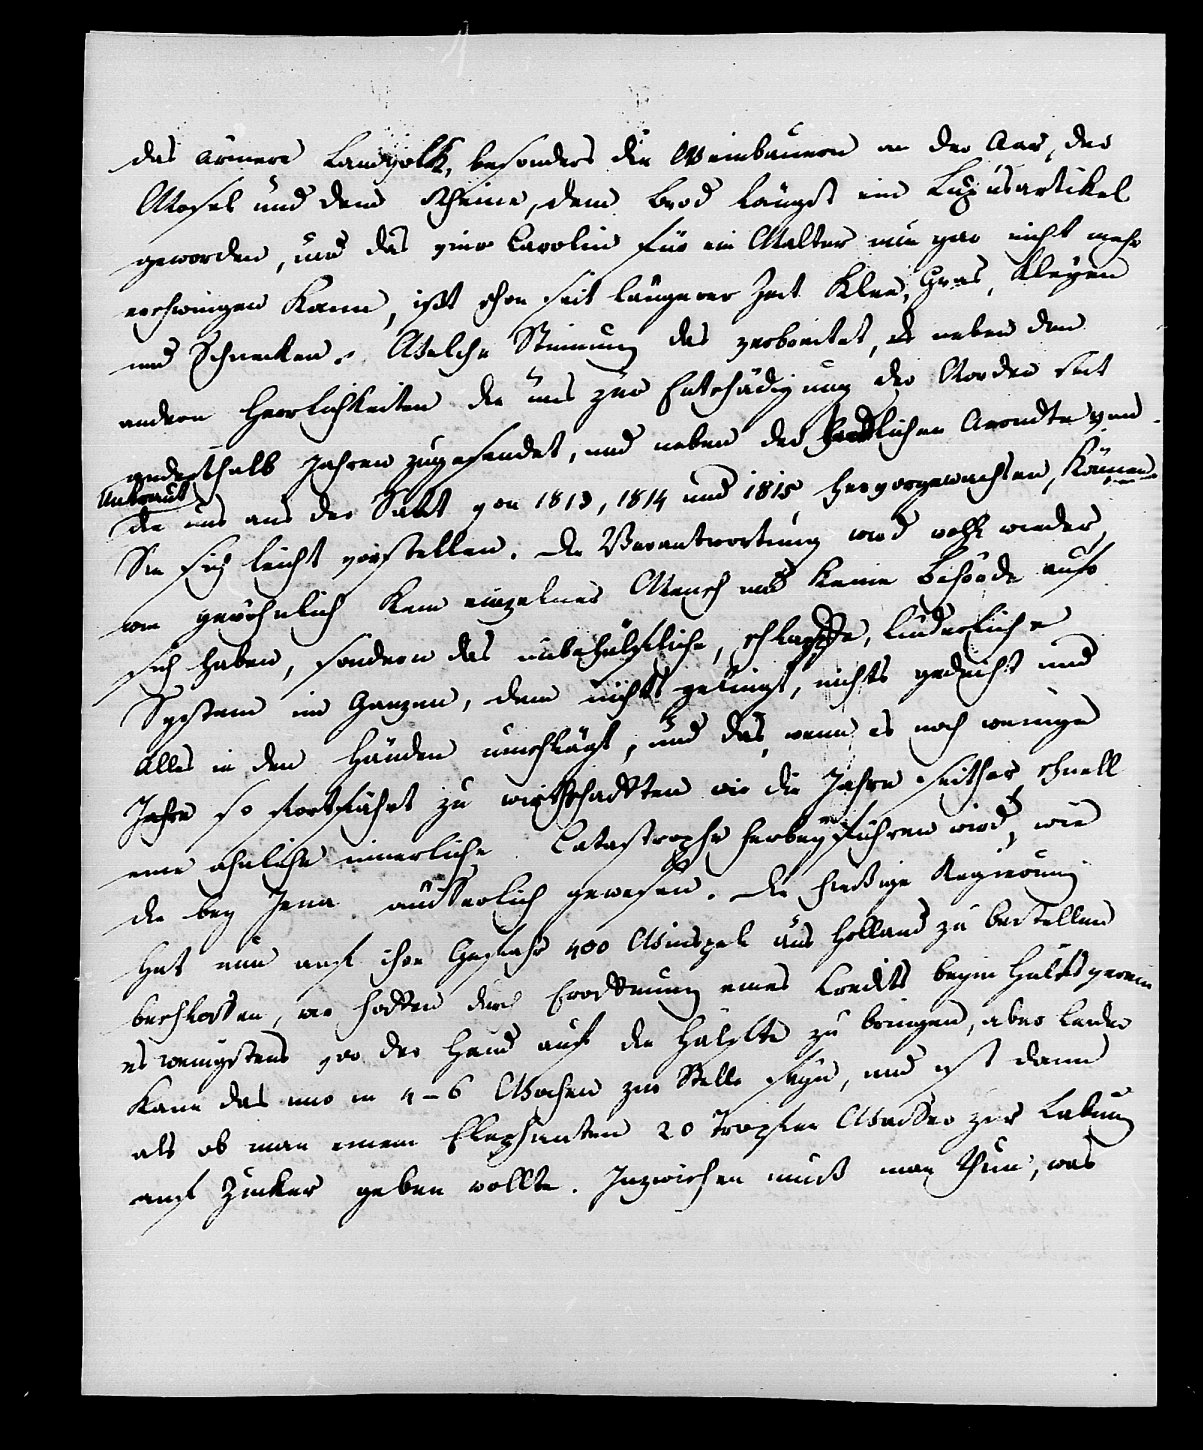 das ärmere Landvolk, besonders die Weinbauern an der Aar, der
Mosel und dem Rheine, dem Brod längst ein Luxusartikel
geworden, und das vier Carolin für ein Malter nun gar nicht mehr
erschwingen kann, ißt schon seit längerer Zeit Klee, Gras, Kleyen
und Schnecken. Welche Stimmung das verbreitet, als neben den
andern Herrlichkeiten die uns zur Entschädigung der Norden seit
anderthalb Jahren zugesendet, und neben der Aerndte von
Unkraut
die uns aus der Saat von 1813, 1814 und 1815 hervorgewachsen, können
Sie sich leicht vorstellen. Die Verantwortung wird wohl wieder,
wie gewöhnlich kein einzelner Mensch und keine Behörde auf
sich haben, sondern das unbehülfliche, schlaffe, liederliche
System im Ganzen, dem nichts gelingt, nichts gedeiht und
Alles in den Händen umschlägt, und das, wenn es noch wenige
Jahre so fortfährt zu wirthschaften wie die Jahre seither, schnell
eine ähnliche innerliche Catastrophe herbeyführen wird, wie
die bey Jena äusserlich gewesen. Die hießige Regierung
hat nun auf ihre Gefahr 400 Winspel aus Holland zu bestellen
beschlossen, wir hoffen durch Eroeffnung eines Credits beym Hülfsverein
es wenigstens vor der Hand auf die Hälfte zu bringen, aber leider
kann das nur in 4-6 Wochen zur Stelle seyn, und ist dann
als ob man einem Elephanten 20 Tropfen Wasser zur Labung
auf Zucker geben wollte. Inzwischen muß man thun, was